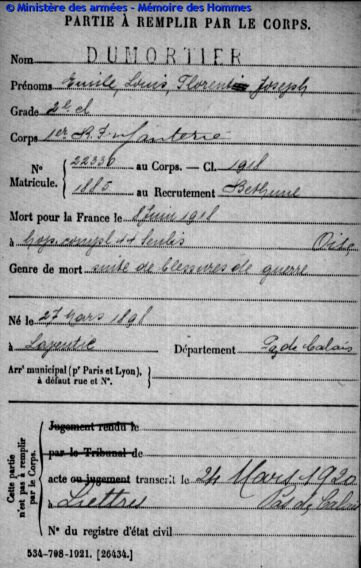 © Ministère des armées - Mémoire des Hommes
PARTIE À REMPLIR PAR LE CORPS.
Nom DUMORTIER
Prénoms Emile, Louis, Florentin Joseph
Grade 2e cl
Corps 1er R. Infanterie
N° Matricule. { 22336 au Corps. — Cl. 1918
1880 au Recrutement Béthune
Mort pour la France le Juin 1918
à Hop. compl 44 Senlis Oise
Genre de mort suite de blessures de guerre
Né le 27 Mars 1898
à Département Pas de Calais
Arrt municipal (pr Paris et Lyon), à défaut rue et N°. {
Cette partie n'est pas à remplir par le Corps.
Jugement rendu le
par le Tribunal de
acte ou jugement transcrit le 24 Mars 1920
à Liettres Pas de Calais
N° du registre d'état civil
534-708-1921. [26434.]